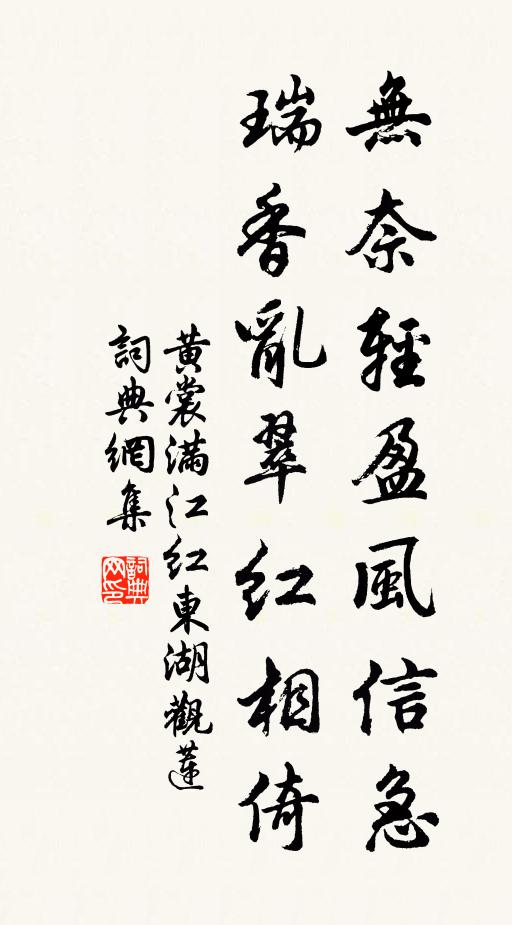 無奈輕盈風信急
瑞香亂翠紅相倚
黃裳滿江紅東湖觀蓮
詞典網集
詞典網印